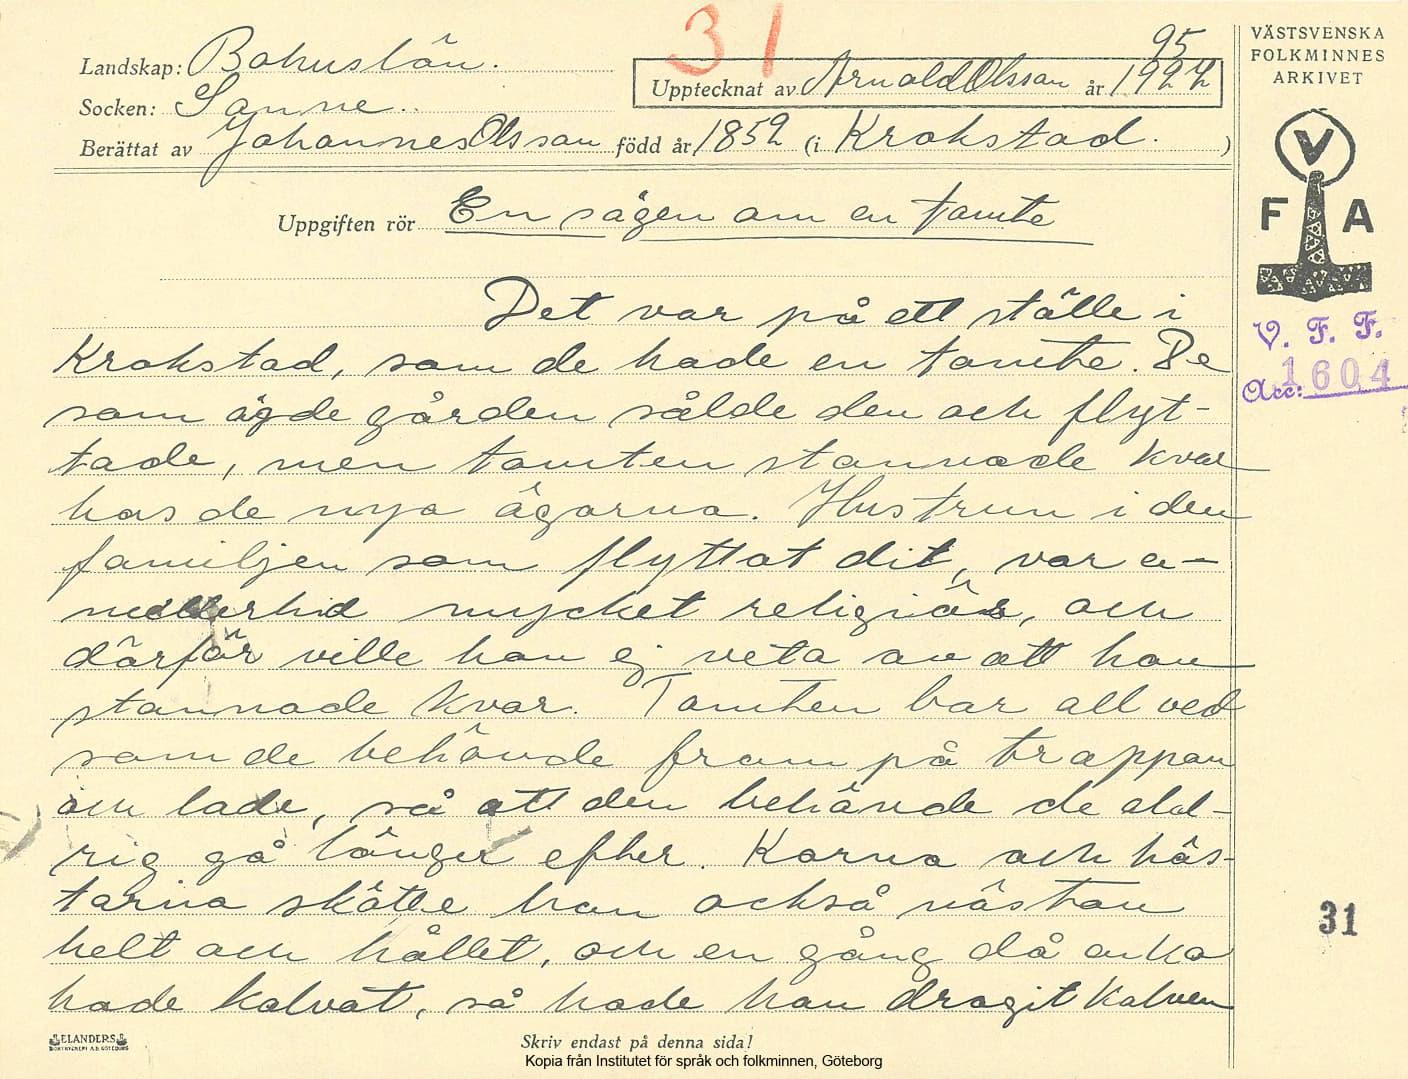 31
Landskap: Bohuslän.
Socken: Sanne.
Berättat av Johannes Olsson född år 1852 (i Krokstad. )
Upptecknat av Arnold Olsson år 1927
95
VÄSTSVENSKA
FOLKMINNES
ARKIVET
V
F A
V. F. F.
Acc: 1604
Uppgiften rör En sägen om en tomte
Det var på ett ställe i
Krokstad, som de hade en tomte. De
som ägde gården sålde den och flyt-
tade, men tomten stannade kvar
hos de nya ägarna. Hustrun i den
familjen som flyttat dit, var e-
mellertid mycket religiös, och
därför ville hon ej veta av att han
stannade kvar. Tomten bar all ved
som de behövde fram på trappan
och lade, så att den behövde de ald-
rig gå länger efter. Korna och häs-
tarna skötte han också nästan
helt och hållet, och en gång då en ko
hade kalvat, så hade han dragit kalven
31
ELANDERS
BOKTRYCKERI A.B. GÖTEBORG
Skriv endast på denna sida!
Kopia från Institutet för språk och folkminnen, Göteborg